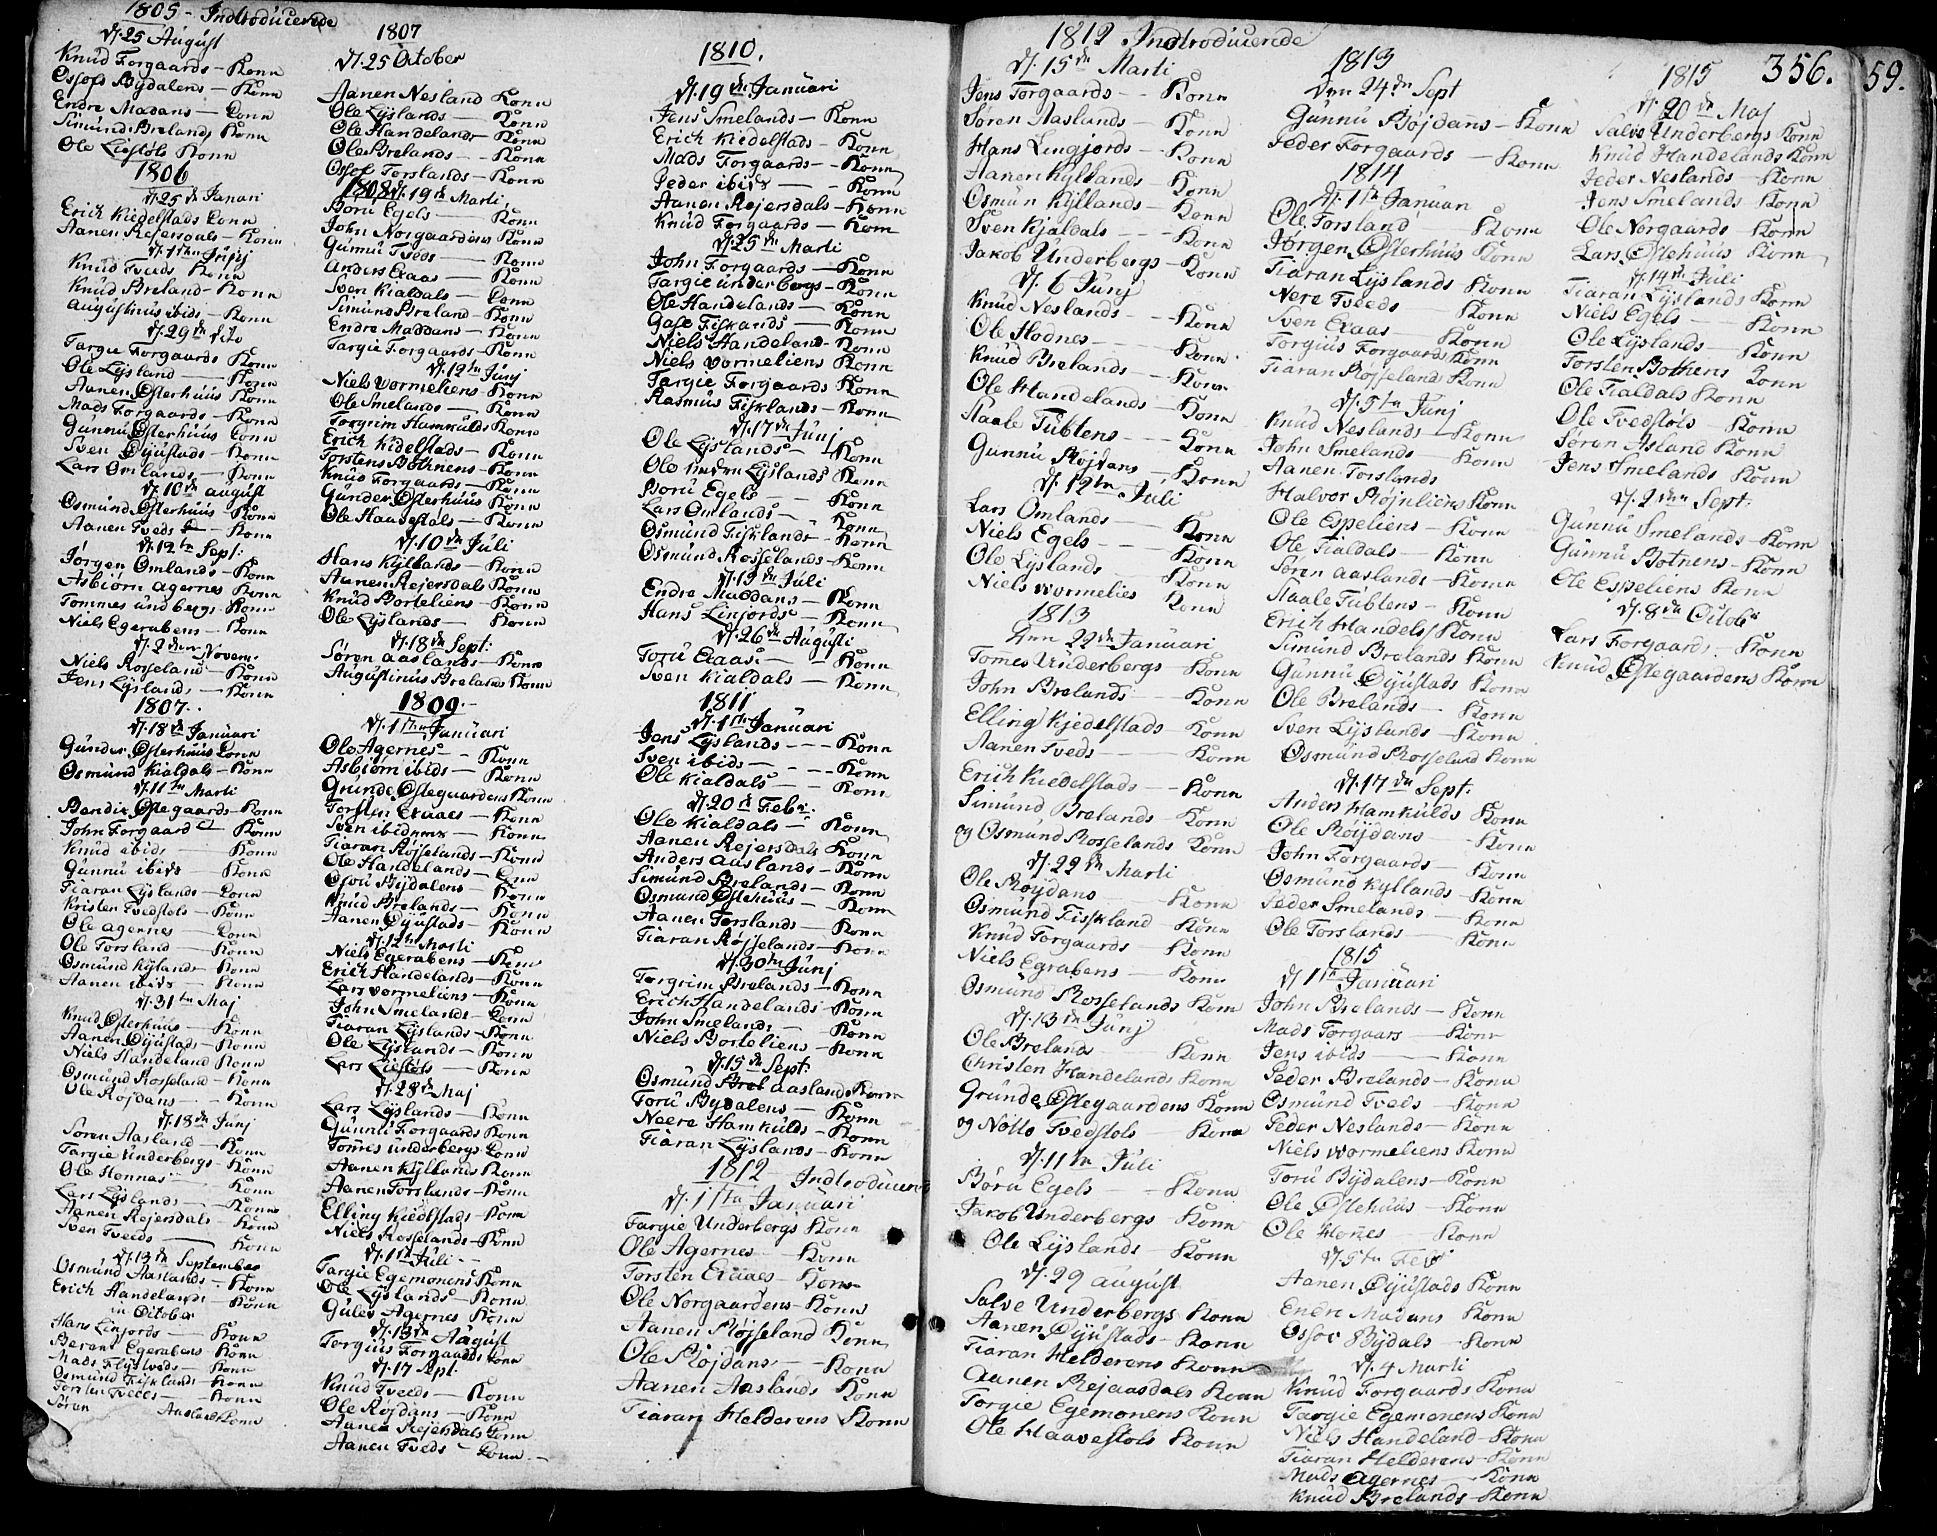 1805 - Indtroducerede
d. 25 August
Knud Forgaards - Konn
Ossofs Bydalens - Konn
Endre Madans - Konn
Simund Brelands Konn
Ole Liestöls Konn
1806
d. 25de Januari
Erich Kiedelstads Konn
Aanen Rejersdals - Konn
Knud Tveds Konn
Knud Breland - Konn
Augustinus ibids - Konn
d. 29de dito
Targie Forgaards Konn
Ole Lysland - Konn
Aanen Østerhuus Konn
Mads Forgaards - Konn
Gunnu Østerhuus Konn
Sven Øyustads - Konn
Lars Omlands - Konn
d. 10de august
Osmund Østerhuus - Konn
Aanen Tveds - Konn
d. 12te Sept:
Jørgen Omlands - Konn
Asbiørn Agernes Konn
Tommes undbergs - Konn
Niels Egerabens - Konn
d. 2den Novem:
Niels Rosseland - Konn
Jens Lyslands - Konn
1807.
d. 18de Januari
Gunder Østerhuus Konn
Osmund Kialdals - Konn
d. 11te Marti
Bendix Østegaards - Konn
John Forgaard - Konn
Knud ibids - Konn
Gunnu ibids - Konn
Tiaran Lyslands - Konn
Kristen Tvedstols - Konn
Ole agernes - Konn
Ole Torsland - Konn
Osmund Kylands - Konn
Aanen ibids - Konn
d. 31te Maj
Knud Østerhuus - Konn
Aanen Øyustads - Konn
Niels Handeland Konn
Osmund Rosseland - Konn
Ole Röjdans - Konn
d. 18de Junj
Sören Aasland - Konn
Targie Underbergs - Konn
Ole Honnes - Konn
Lars Lyslands - Konn
Aanen Rejersdals - Konn
Sven Tveeds - Konn
d. 13de September
Osmund Aaslands - Konn
Erich Handelands - Konn
in October
Hans Linjords - Konn
Berent Egerabens Konn
Mads Flystveds - Konn
Osmund Fisklands - Konn
Torsten Tveeds - Konn
Sören Aasland Konn
1807
d. 25 October
Aanen Nesland Konn
Ole Lyslands - Konn
Ole Handelands - Konn
Ole Brelands - Konn
Ossof Torslands - Konn
1808 d. 19de Marti
Boru Egels - Konn
John Norgaardens Konn
Gunnu Tveds - Konn
Anders Eraas - Konn
Sven Kialdals - Konn
Simund Breland - Konn
Endre Maddans - Konn
Targie Forgaards - Konn
d. 12te Junj
Niels Vormeliens - Konn
Ole Smelands - Konn
Torgrim Hamkulds Konn
Erich Kidelstads - Konn
Torstens Botnens - Konn
Knud Forgaards - Konn
Gunder Østerhuus Konn
Ole Haavestøls - Konn
d. 10de Juli
Hans Kyllands - Konn
Aanen Rejersdals Konn
Knud Borteliens - Konn
Ole Lyslands - Konn
d. 18de Sept:
Søren Aaslands - Konn
Augustinus Brelands Konn
1809.
d. 1te Januari
Ole Agernes - Konn
Asbiørn ibids - Konn
Grunde Østegaardens Konn
Torsten Eraaes - Konn
Sven ibidmms - Konn
Tiaran Røsselands - Konn
Ole Handelands - Konn
Osou Bydalens - Konn
Knud Brelands - Konn
Aanen Øyustads - Konn
d. 12te Marti
Niels Egerabens - Konn
Erich Handelands - Konn
Lars vormeliens - Konn
John Smelands - Konn
Tiaran Lyslands - Konn
Ole Lyslands - Konn
Lars Liestøls - Konn
d. 28de Maj
Lars Lyslands - Konn
Gunnu Forgaards Konn
Tomes underbergs Konn
Aanen Kyllands Konn
Aanen Torslands - Konn
Elling Kiedelstads - Konn
Niels Rosselands - Konn
d. 1te Juli -
Targie Egemonens Konn
Ole Lyslands - Konn
Gulev Agernes Konn
d. 13de August
Torgius Forgaards Konn
d. 17 Spt.
Knud Tveeds - Konn
Ole Røjdans - Konn
Aanen Rejersdals Konn
Aanen Tveds - Konn
1810.
d. 19de Januari
Jens Smelands - Konn
Erich Kiedelstads - Konn
Mads Forgaards - Konn
Peder ibids - Konn
Aanen Rejersdals - Konn
Knud Forgaards - Konn
d. 25de Marti
John Forgaards - Konn
Targie underbergs - Konn
Ole Handelands - Konn
Gase Fiskands - Konn
Niels Handeland - Konn
Niels vormeliens Konn
Targie Forgaards Konn
Rasmus Fisklands - Konn
d. 17de Junj
Ole Lyslands - Konn
Ole Lyslands Konn
Boru Egels - Konn
Lars Omlands - Konn
Osmund Fisklands - Konn
Osmund Rosselands - Konn
d. 15de Juli
Endre Maddans - Konn
Hans Linjords - Konn
d. 26de Augusti
Toru Eraas - Konn
Sven Kialdals - Konn
1811
d. 1te Januari
Jens Lyslands - - - Konn
Sven ibids - - - - Konn
Ole Kialdals - - Konn
d. 20de Feb:
Ole Kialdals - Konn
Aanen Rejersdals Konn
Anders Aaslands - Konn
Simund Brelands - Konn
Osmund Østehuus - Konn
Aanen Torslands - Konn
Tiaran Røsselands - Konn
d. 30te Junj
Torgrim Brelands - Konn
Erich Handelands - Konn
John Smelands - Konn
Niels Borteliens - Konn
d. 15de Sept.
Osmund aasland Konn
Toru Bydalens - Konn
Naere Hamkulds - Konn
Tiaran Lyslands - Konn
1812 Indtroducer
d. 1te Januari
Targie Underbergs Konn
Ole Agernes - Konn
Torsten Eraaes - Konn
Ole Norgaardens - Konn
Aanen Röjseland Konn
Ole Röjdans - Konn
Aanen Aaslands Konn
Tiaran Helderens Konn
1812 Indtroducerede
d. 15de Marti
Jens Forgaards - - Konn
Sören Aaslands - Konn
Hans Lingjords - - Konn
Aanen Kyllands - Konn
Osmun Kyllands - Konn
Sven Kjaldals - - - Konn
Jakob Underbergs - Konn
d. 6 Junj
Knud Neslands - - - Konn
Ole Hodnes - - - Konn
Knud Brelands - - Konn
Ole Handelands - Konn
Staale Tubtens - - - Konn
Gunnu Röjdans - Konn
d. 12te Juli
Lars Omlands - Konn
Niels Egels - - Konn
Ole Lyslands Konn
Niels vormelies Konn
1813
Den 22de Januari
Tomes Underbergs - Konn
John Brelands - Konn
Elling Kjedelstads - Konn
Aanen Tveds - Konn
Erich Kiedelstads - Konn
Simund Brelands - Konn
og Osmund Rosselands Konn
d. 22de Marti
Ole Röydans - Konn
Osmund Fisskland - Konn
Knud Forgaards - Konn
Niels Egrabens - Konn
Osmund Rosselands Konn
d. 13de Junj
Ole Breland - Konn
Christen Handelands Konn
Grunde Østegaardens Konn
og Notto Tvedstols - Konn
d. 11te Juli
Börü Egels - - Konn
Jakob Underbergs - Konn
Ole Lyslands - Konn
d. 29 august
Salve Underbergs Konn
Aanen Øyustads - Konn
Tiaran Helderens Konn
Aanen Rejaasdals Konn
Torgie Egemonens Konn
Ole Haavestols Konn
1813
Den 24de Sept
Gunnu Bøjdans - Konn
Peder Forgaards - Konn
1814
d. 1te Januari
Ole Torsland - Konn
Jørgen Østerhuus Konn
Tiaran Lyslands Konn
Nere Tveeds - Konn
Sven Eraas - Konn
Torgius Forgaards Konn
Tiaran Röjseland Konn
d. 5te Junj
Knud Neslands - Konn
John Smelands - Konn
Aanen Torslands
Halvor Röjnliens Konn
Ole Espeliens - Konn
Ole Tialdals - Konn
Søren aaslands - Konn
Staale Tubtens - Konn
Erich Handels Konn
Simund Brelands Konn
Gunnu Øyustads Konn
Ole Brelands - Konn
Sven Lyslands - Konn
Osmund Rosseland Konn
d. 17de Sept.
Anders Hamkulds Konn
Ole Röijdans - Konn
John Forgaards - Konn
Osmund Kyllands - Konn
Peder Smelands - Konn
Ole Torslands - Konn
1815
d. 1te Januari
John Brelands - Konn
Mads Forgaars - Konn
Jens ibids - Konn
Peder Brelands - Konn
Osmund Tveds - Konn
Peder Neslands - Konn
Niels vormeliens Konn
Toru Bydalens - Konn
Ole Østehuus - Konn
Ole Homes - Konn
d. 5te Feb
Aanen Øyustads Konn
Endre Madans Konn
Ossov Bydals - Konn
d. 4 Marti
Knud Forgaards Konn
Targie Egemonens Konn
Niels Handeland - Konn
Tiaran Helderens - Konn
Mads Agernes - Konn
Knud Brelands - Konn
1815
356.
59.
d. 20de Maj
Salve Underbergs Konn
Knud Handelands Konn
Peder Neslands - Konn
Jens Smelands Konn
Ole Norgaards - Konn
Lars Østehuus Konn
d. 14de Juli
Tiaran Lyslands Konn
Niels Egels - Konn
Ole Lyslands - Konn
Torsten Bothens Konn
Ole Tialdals Konn
Ole Tvedstøls - Konn
Søren Asland Konn
Jens Smelands Konn
d. 2den Sept:
Gunnu Smelands - Konn
Gunnu Botnens - Konn
Ole Espeliens Konn
d. 8de Octob:
Lars Forgaards - Konn
Knud Østegaardens Konn